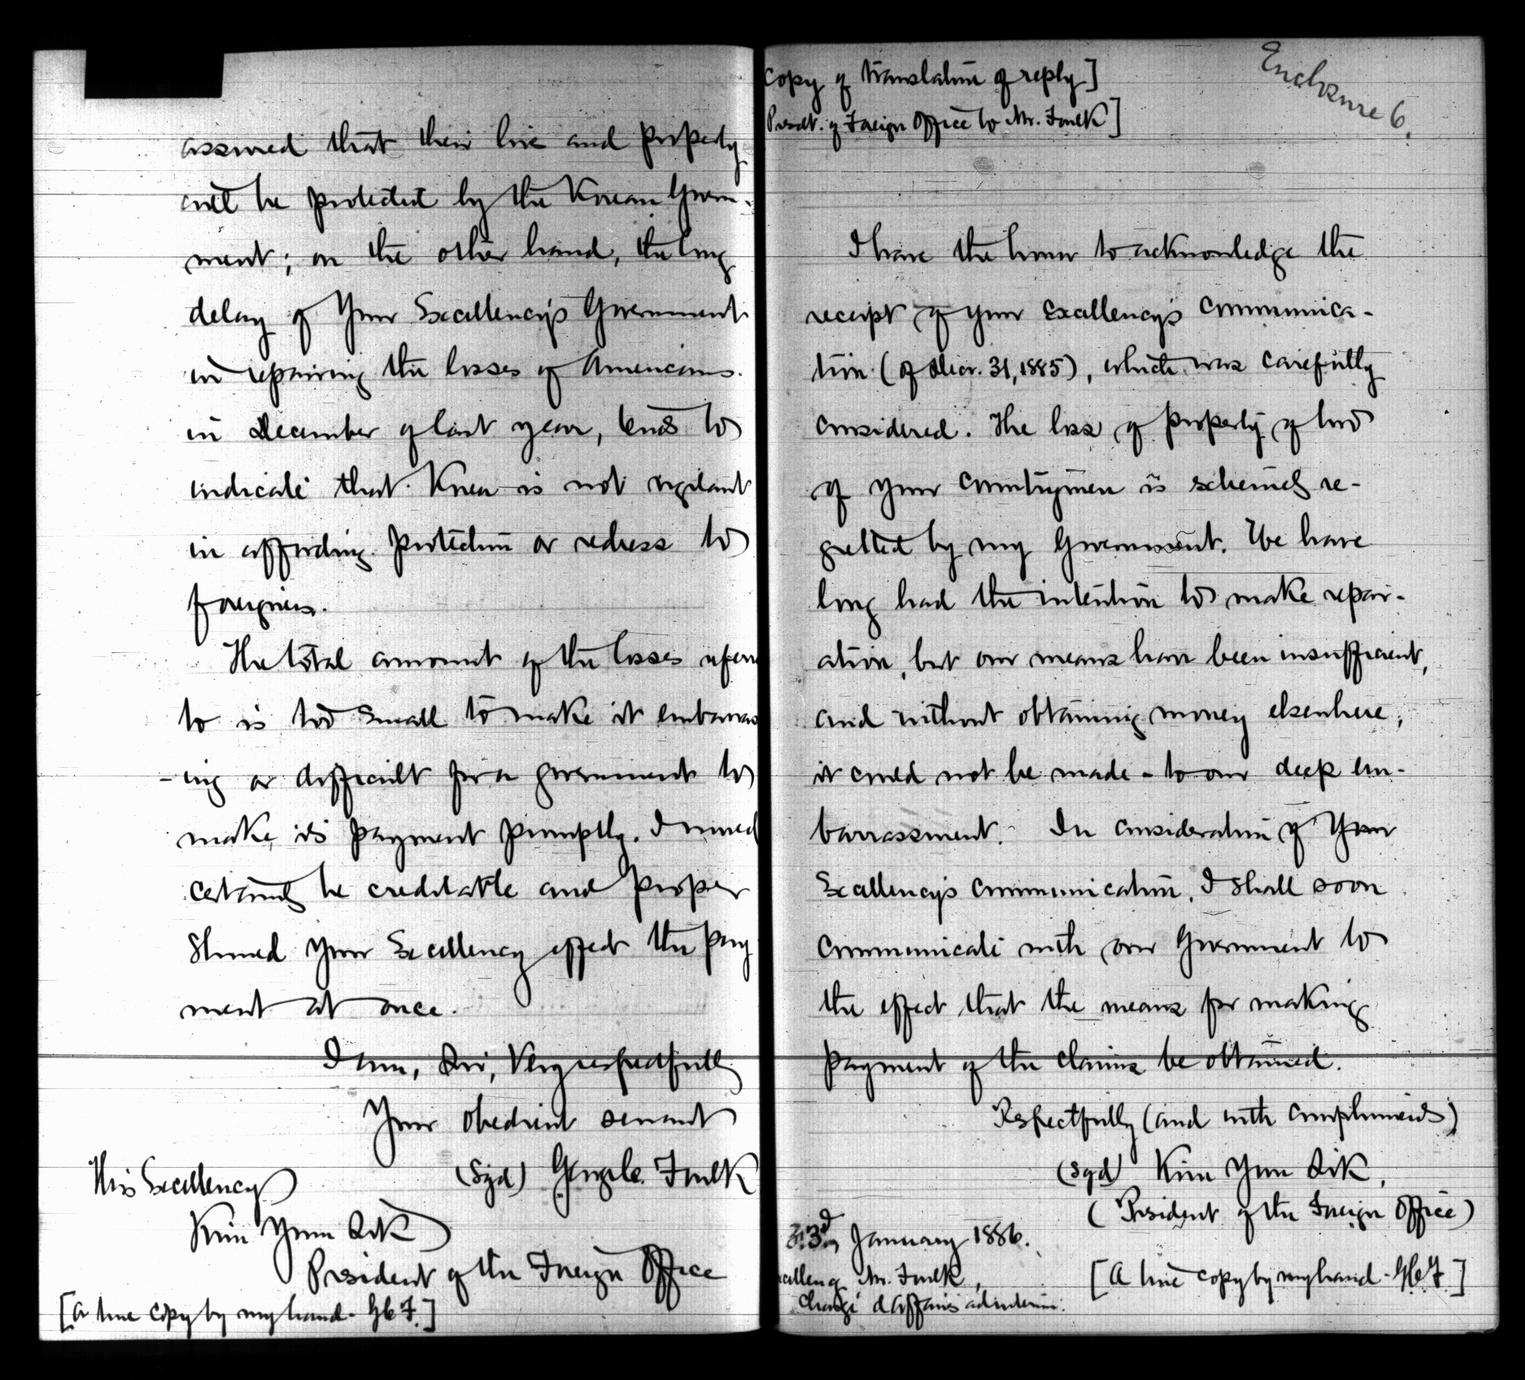 assured that their live and property
will be protected by the Korean Govern-
ment; on the other hand, the long
delay of Your Excellency's Government
in repairing the losses of Americans
in December of last year, tends to
indicate that Korea is not vigilant
in affording protection or redress to
foreigners.
The total amount of the losses referr
to is too small to make it embarrass
-ing or difficult for a government to
make its payment promptly. I
certainly be creditable and proper
should Your Excellency effect the pay
ment at once.
I am, Sir, Very respectfully
Your obedient servant
(sgd) George C. Foulk
His Excellency
Kim Yun Sik
President of the Foreign Office
[A true copy by my hand - GCF.]
Enclosure 6.
Copy of translation of reply]
Presdt. of Foreign Office to Mr. Foulk]
I have the honor to acknowledge the
receipt of your Excellency's communica-
tion (of Decr. 31, 1885), which was carefully
considered. The loss of property of two
of your countrymen is re-
gretted by my Government. We have
long had the intention to make repar-
ation, but our means have been insufficient,
and without obtaining money elsewhere,
it could not be made - to our deep em-
barrassment. In consideration of Your
Excellency's communication, I shall soon
communicate with our Government to
the effect that the means for making
payment of the claims be obtained.
Respectfully (and with compliments)
(sgd) Kim Yun Sik,
(President of the Foreign Office)
January 1886.
Mr. Foulk,
Chargé d'affaires ad interim.
[A true copy by my hand - GCF]